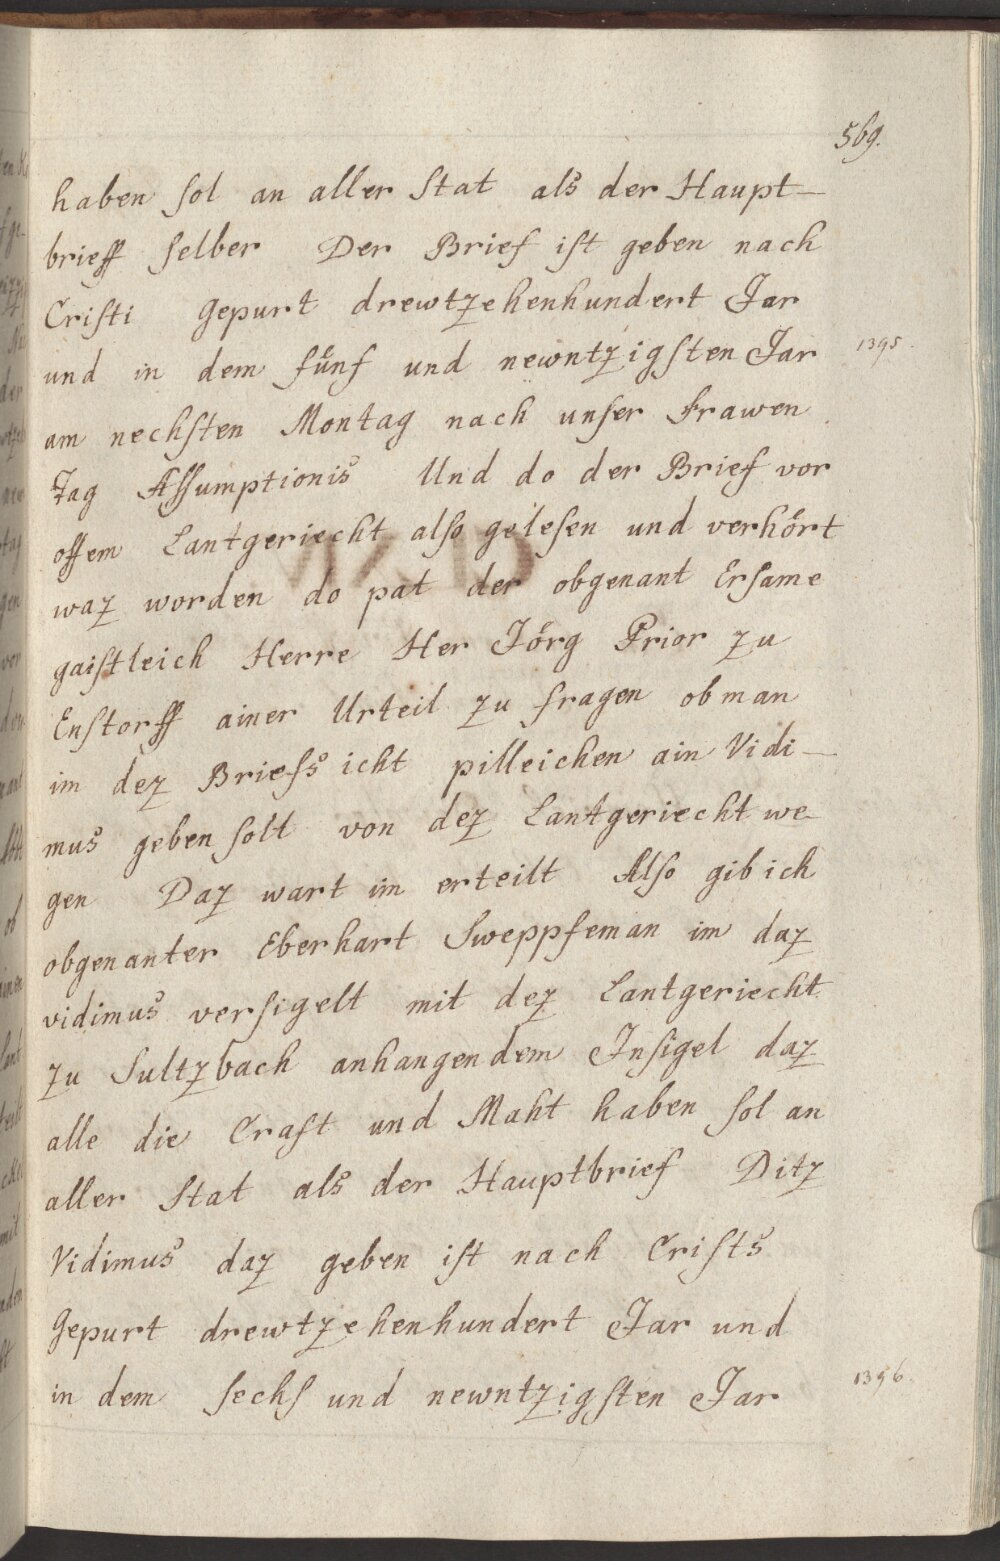 569.
haben sol an aller Stat als der Haupt-
brieff selber Der Brief ist geben nach
Cristi Gepurt drewtzehenhundert Jar
und in dem fünf und newntzigsten Jar 1395.
am nechsten Montag nach unser Frawen
Tag Assumptionis Und do der Brief vor
offem Lantgeriecht also gelesen und verhört
waz worden do pat der obgenant Ersame
gaistleich Herre Her Jörg Prior zu
Enstorff ainer Urteil zu fragen ob man
im dez Briefs icht pilleichen ain Vidi-
mus geben solt von dez Lantgeriecht we-
gen Daz wart im erteilt Also gib ich
obgenanter Eberhart Sweppfeman im daz
vidimus versigelt mit dez Lantgeriecht
zu Sultzbach anhangendem Insigel daz
alle die Craft und Maht haben sol an
aller Stat als der Hauptbrief Ditz
Vidimus daz geben ist nach Crists
Gepurt drewtzehenhundert Jar und
in dem sechs und newntzigsten Jar 1396.